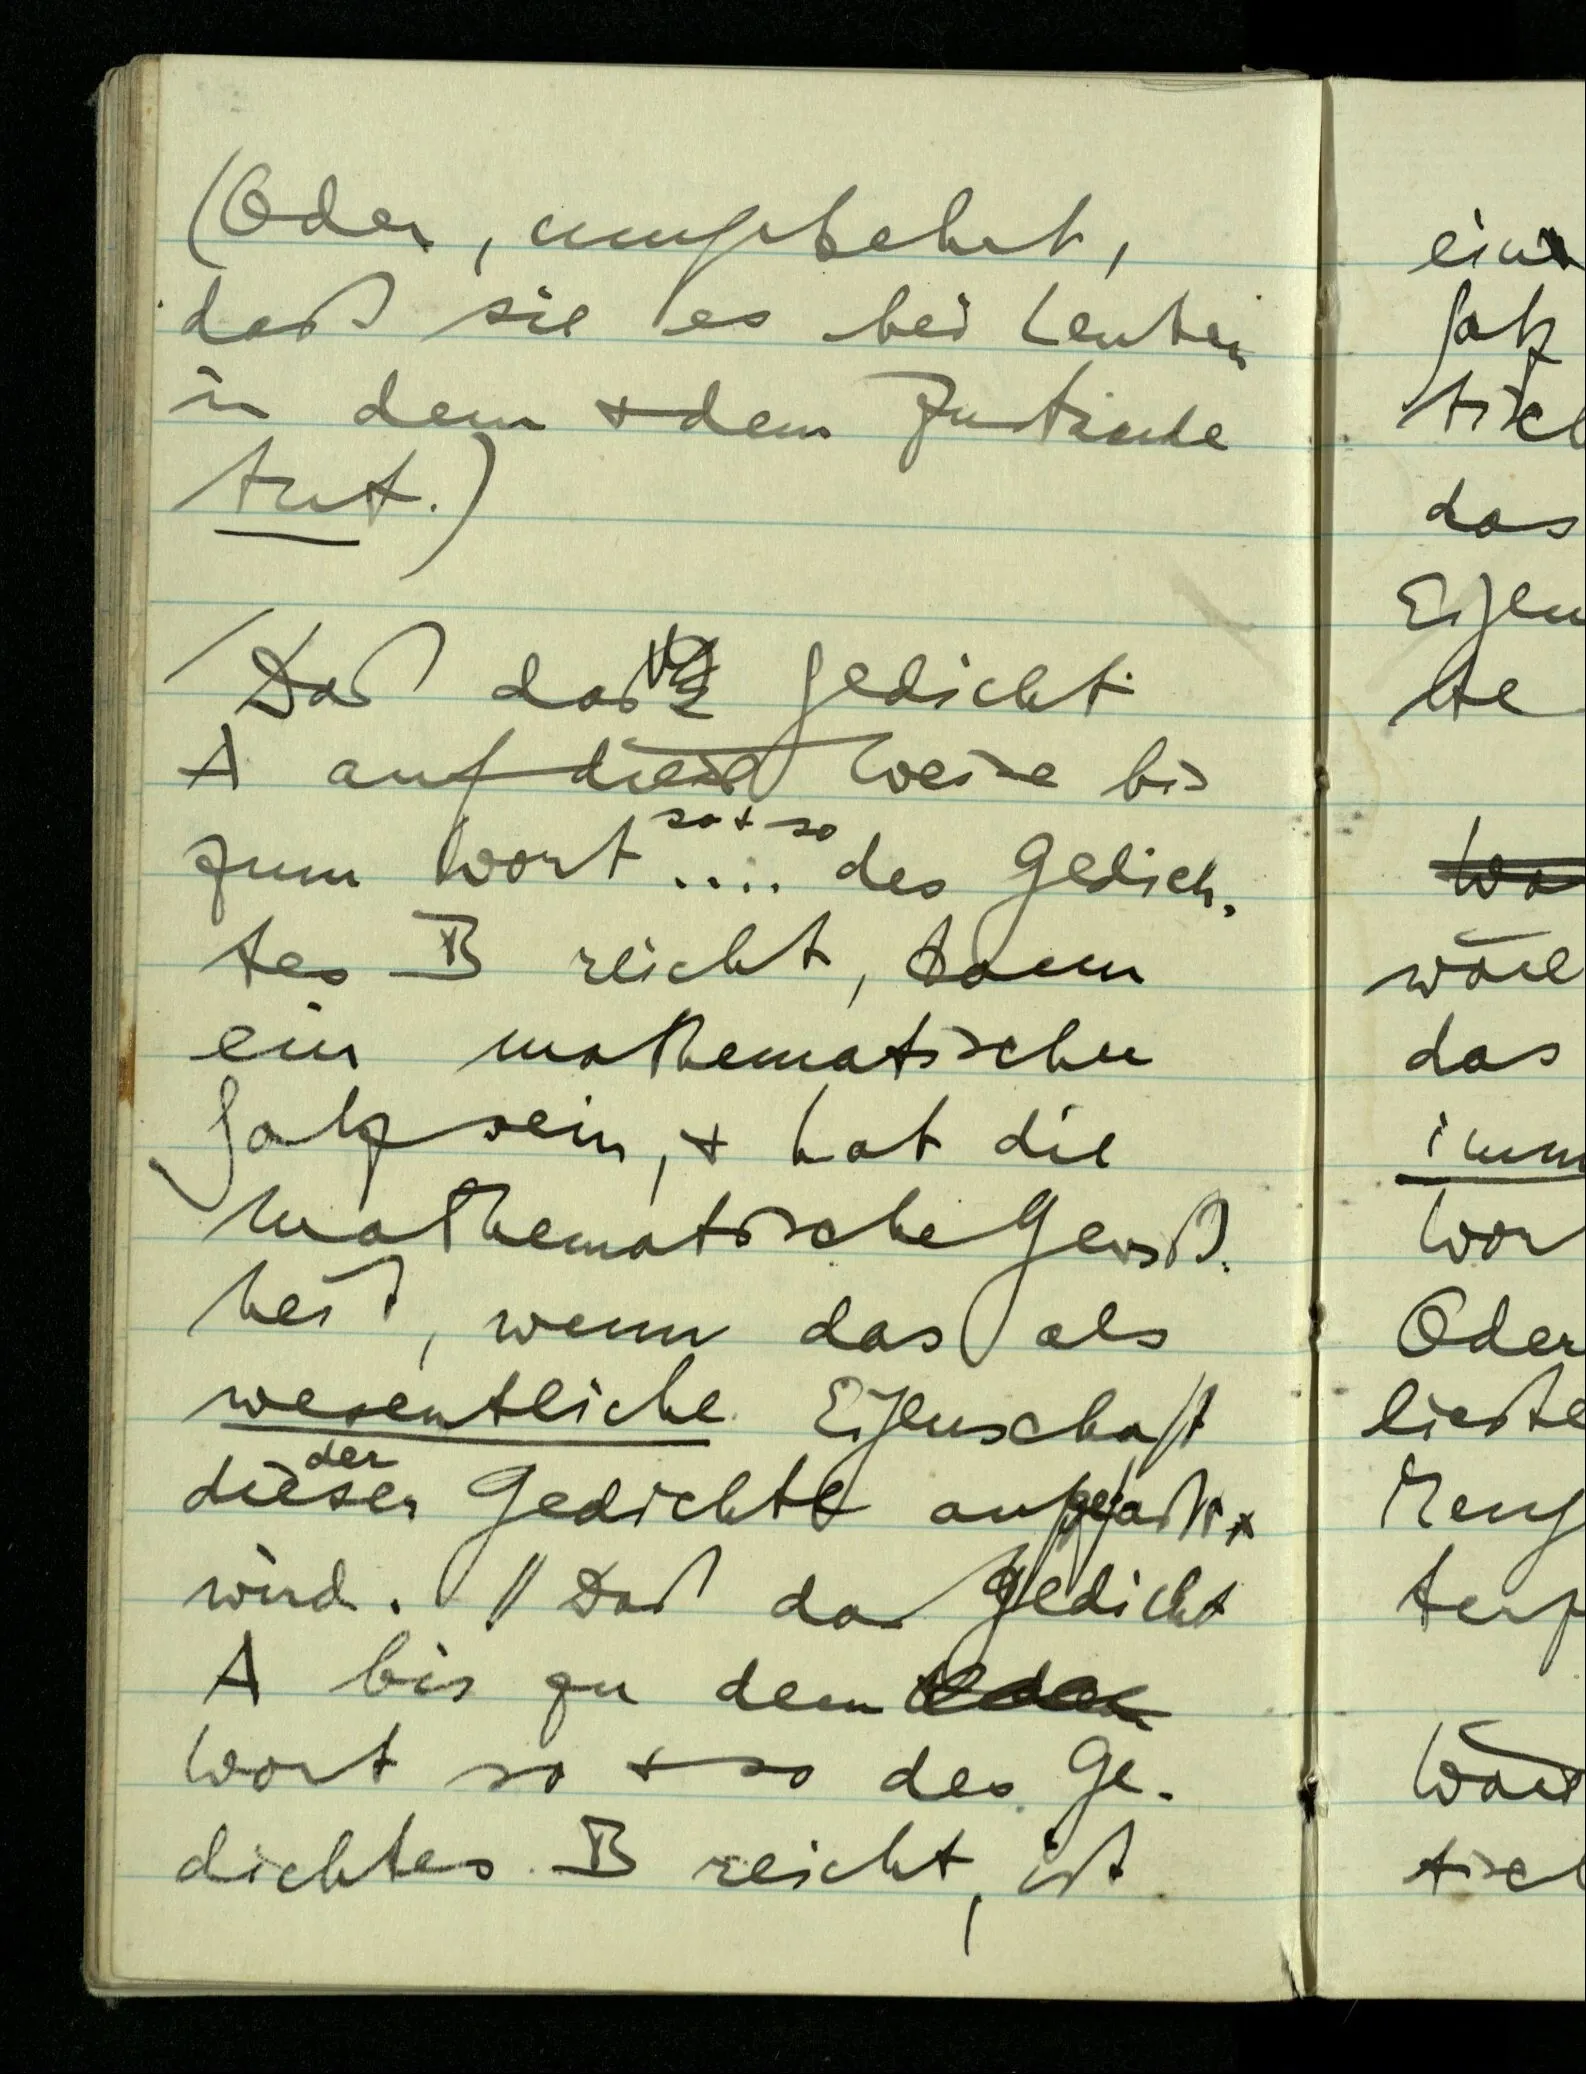 (Oder, umgekehrt,
daß sie es bei Leuten
in dem + dem Zustande
tut.)
/ Daß das Gedicht
A auf diese Weise bis
so + so
zum Wort .... des Gedich-
tes B reicht, kann
ein mathematischer
Satz sein, + hat die
mathematische Gewiß-
heit, wenn das als
wesentliche Eigenschaft
der
dieser Gedichte aufgefaßt
wird. // Daß das Gedicht
A bis zu dem
Wort so + so des Ge-
dichtes B reicht, ist
ein
Satz
tisch
das
Eigen
te
wäre
das
imm
Wor
Oder
ließe
Meng
terp
Wäre
tisch